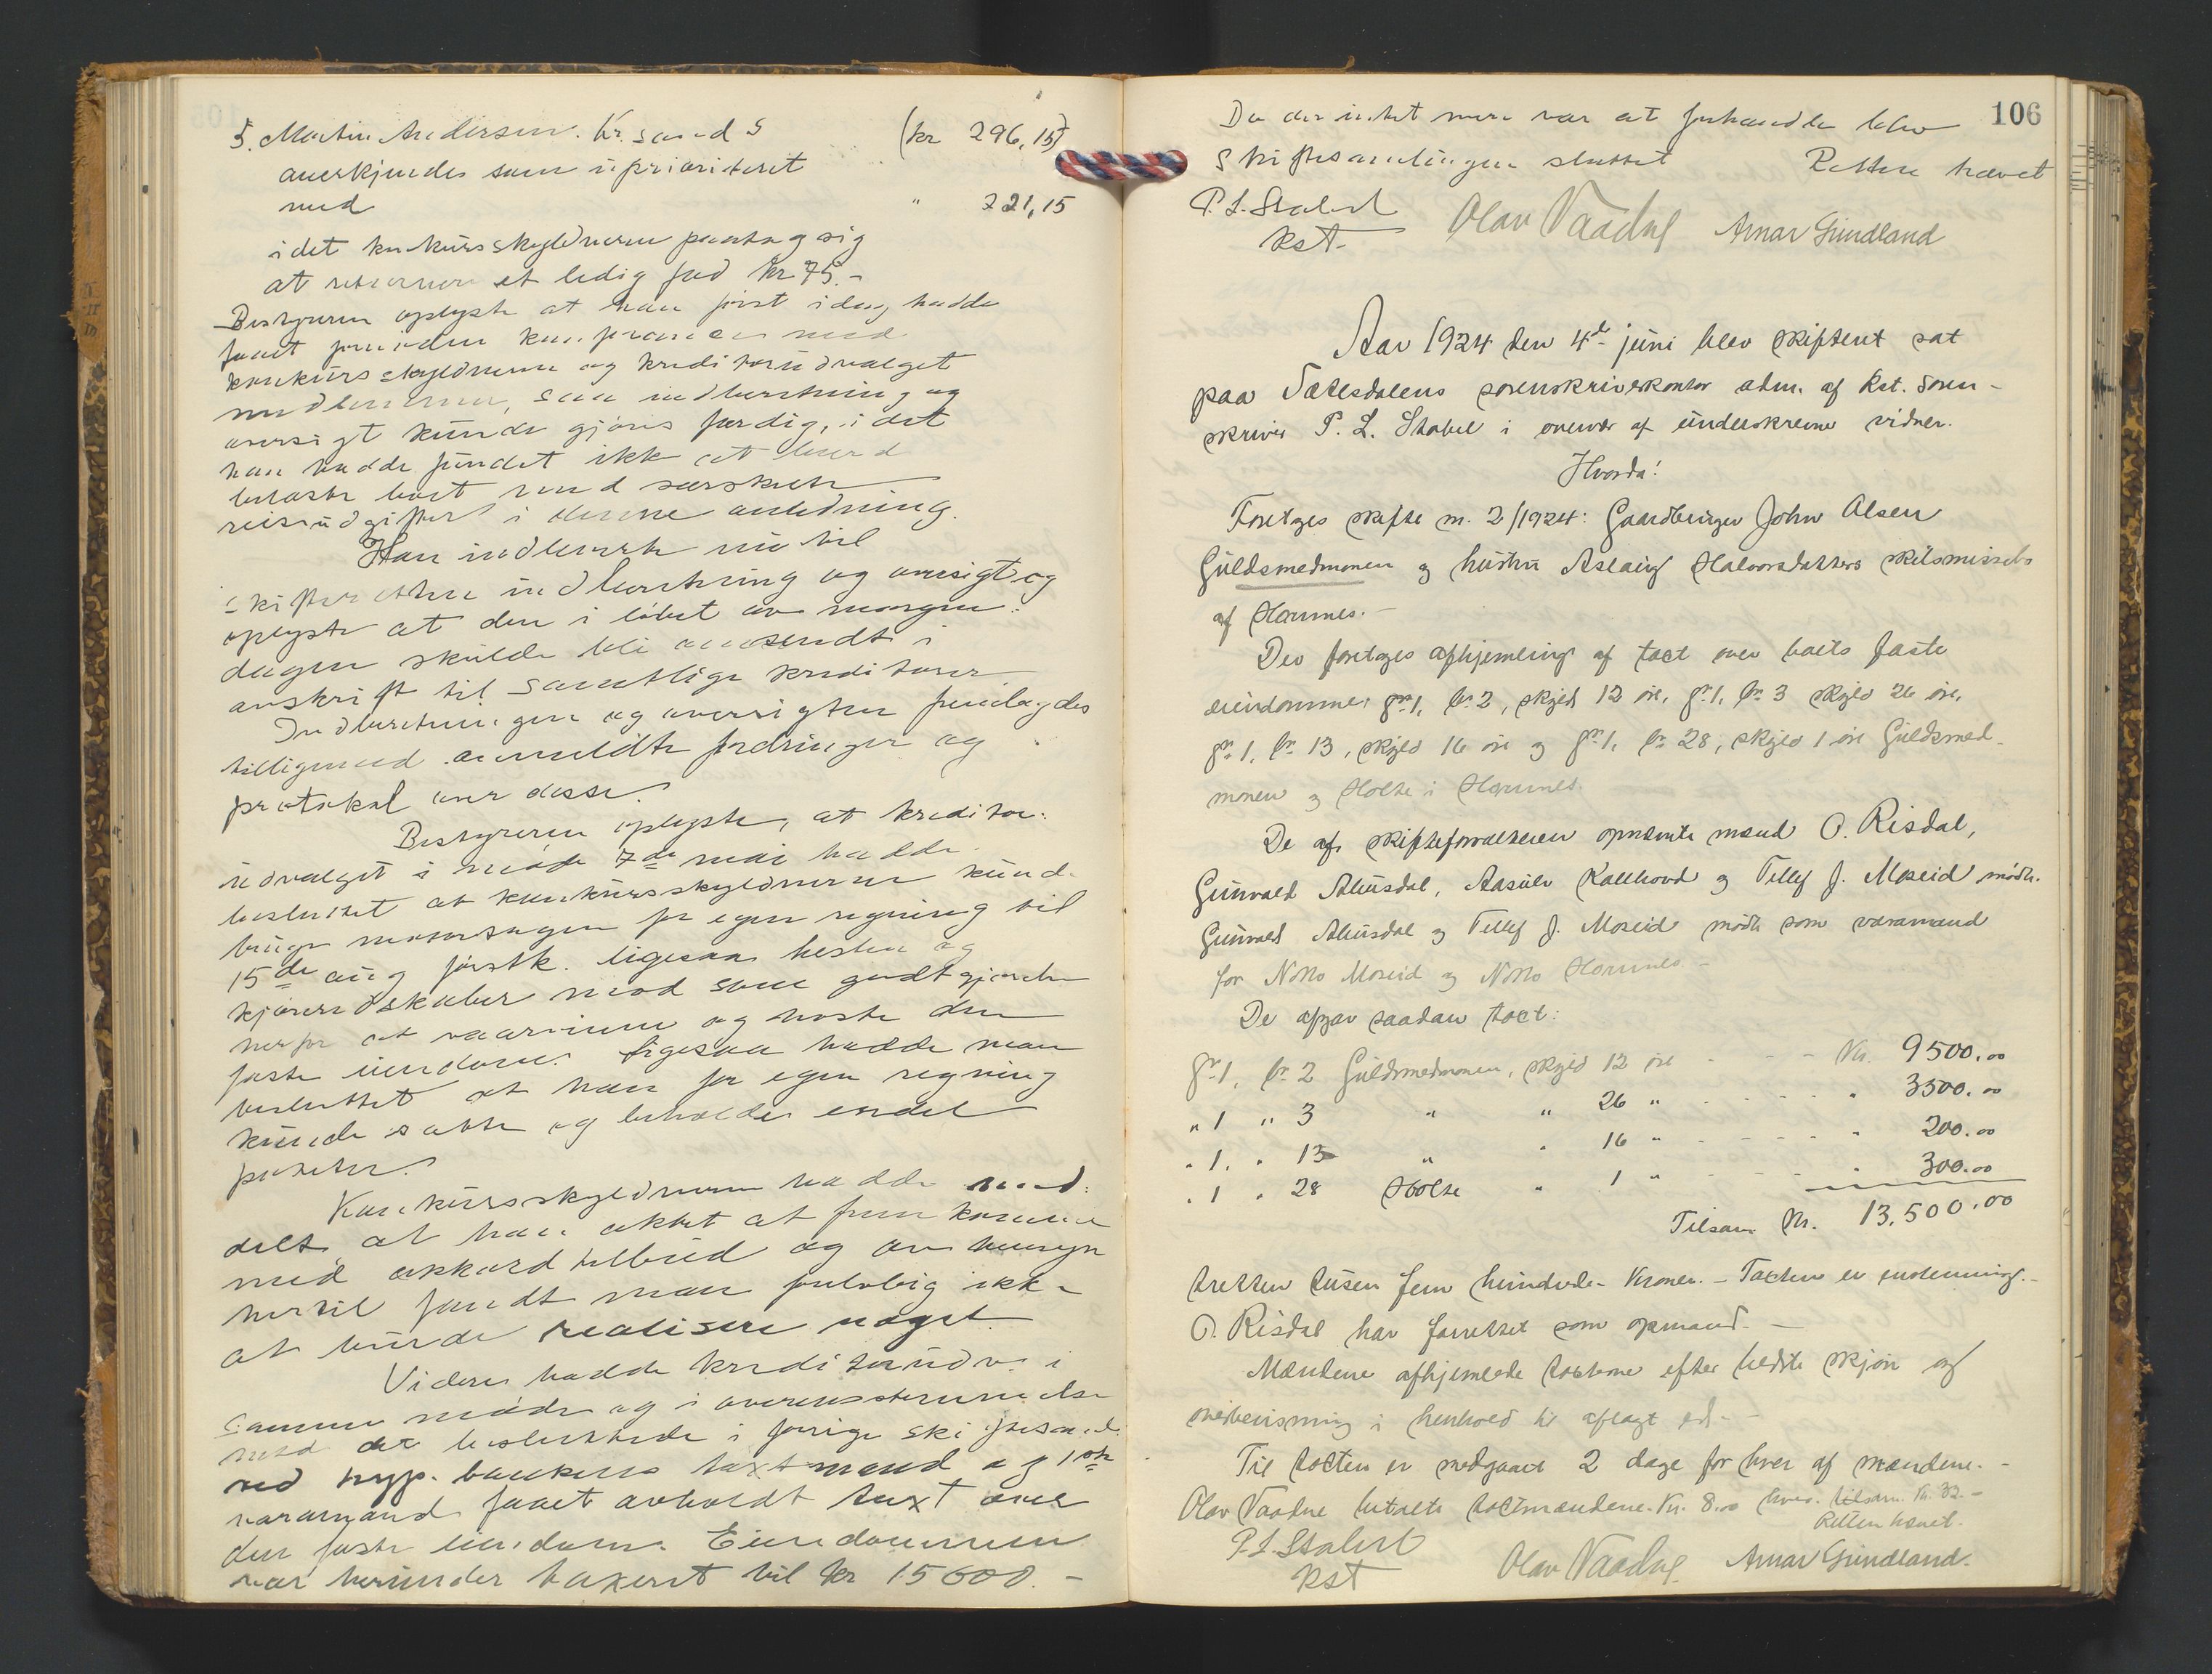 5. Martin Andersen. Kr.sand S (kr 296,15)
anerkjendes som uprioriteret
med " 221,15
idet konkursskyldneren paatog sig
at returnere et ledig fad kr 75.-
Bestyreren oplyste at han først idag hadde
faaet foreviden konferancen med
konkursskyldneren og kreditorudvalget
medlemmer, saa indberetning og
oversigt kunde gjøres færdig, idet
han hadde fundet ikke at burde
belaste boet med særskilte
reiseudgifter i denne anledning.
Han indleverte nu til
skifteretten indberetning og oversigt og
oplyste at den i løbet av morgen-
dagen skulde bli utsendt i
avskrift til samtlige kreditorer
Indberetningen og oversigten fremlagdes
tilligemed anmeldte fordringer og
protokol over disse.
Bestyreren oplyste, at kreditor-
udvalget i møde 7de mai hadde
besluttet at konkursskyldneren kunde
bruge motorsagen for egen regning til
15de aug førstk. ligesaa hesten og
kjøreredskaber mod som godtgjørelse
herfor at vaarvinne og høste den
faste eiendom. Ligesaa hadde man
besluttet at han for egen regning
kunde sætte og beholde endel
poteter.
Konkursskyldneren hadde med-
delt, at han aktet at fremkomme
med akkordtilbud og av hensyn
hertil fandt man foreløbig ikke
at burde realisere noget
Videre hadde kreditorudv. i
samme møde og i overensstemmelse
med det besluttede i forrige skiftesaml.
ved hyp. bankens takstmænd og 1 stk
varamand faaet avholdt taxt over
den faste eiendom. Eiendommen
var herunder taxeret til kr 15600.-
106
Da der intet mere var at forhandle blev
Skiftesamlingen sluttet Retten hævet
P. L. Stabel
kst.
Olav Vaadne Arnar Grundland
Aar 1924 den 4de juni blev skifteret sat
paa Sætesdalens sorenskriverkontor adm. af kst. soren-
skriver P. L. Stabel i overvær af underskrevne vidner.
Hvorda!
Foretoges skifte nr. 2/1924: Gaardbruger John Olsen
Guldsmedmoen og hustru Aslaug Halvorsdatters skilsmissebo
af Hornnes.-
Der foretoges afhjemling af taxt over boets faste
eiendomme: gr. 1, br. 2, skyld 12 øre, gr. 1, br. 3 skyld 26 øre,
gr. 1, br. 13, skyld 16 øre og gr. 1, br. 28, skyld 1 øre Guldsmed-
monen og Holte i Hornnes.
De af skifteforvalteren opnævnte mænd O. Risdal,
Gunvald Ahusdal, Aasulv Kallhovd og Tellef J. Moseid mødte.
Gunvald Ahusdal og Tellef J. Moseid mødte som varamænd
for Notto Moseid og Notto Hornnes.-
De afgav saadan taxt:
gr. 1, br. 2 Guldsmedmonen, skyld 12 øre - - - Kr. 9500.00
" 1 " 3 " " 26 " - - - - - " 3500.00
" 1. " 13 " " 16 " - - - - " 200.00
" 1 " 28 Holte " 1 " - - - - " 300.00
Tilsam. Kr. 13,500.00
tretten tusen fem hundrede Kroner. - Taxten er enstemmig.-
O. Risdal har forrettet som opmand.-
Mændene afhjemlede taxterne efter bedste skjøn og
overbevisning i henhold til aflagt ed.-
Til taxten er medgaaet 2 dage for hver af mændene.-
Olav Vaadne betalte taxtmændene Kr. 8.00 hver. tilsam. Kr. 32.-
Retten hævet.
P. L. Stabel
kst
Olav Vaadne. Arnar Grundland.